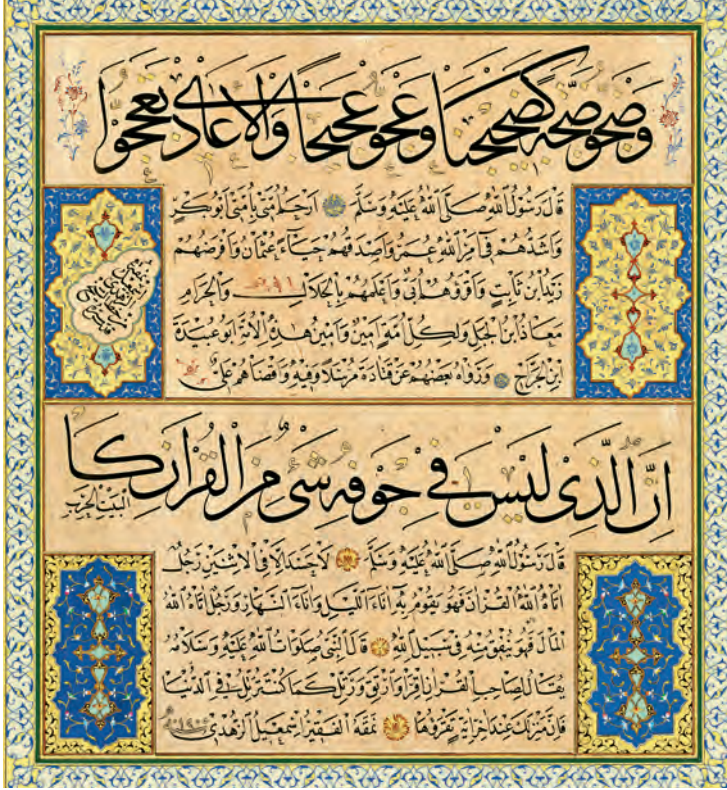 وضجو ضجة كضجيجنا وعجو عجيجا والاعادي
قال رسول الله صلى الله عليه وسلم ارحم امتي بامتي ابوبكر
واشدهم في امر الله عمر واصدقهم حياء عثمان وافرضهم
زيد ابن ثابت واقرؤهم ابي واعلمهم بالحلال والحرام
معاذ ابن الجبل ولكل امة امين وامين هذه الامة ابو عبيدة
ابن الجراح ورواه بعضهم عن قتادة مرسلا وفيه واقضاهم علي
ان الذي ليس في جوفه شئ من القران كا
البيت الخرب
قال رسول الله صلى الله عليه وسلم لا حسد الا في الاثنين رجل
اتاه الله القران فهو يقوم به اناء الليل واناء النهار ورجل اتاه الله
المال فهو ينفق منه في سبيل الله قال النبي صلوات الله عليه وسلامه
يقال لصاحب القران اقرأ وارتق ورتل كما كنت ترتل في الدنيا
فان منزلك عند اخر اية تقرؤها نمقه الفقير اسمعيل الزهدي